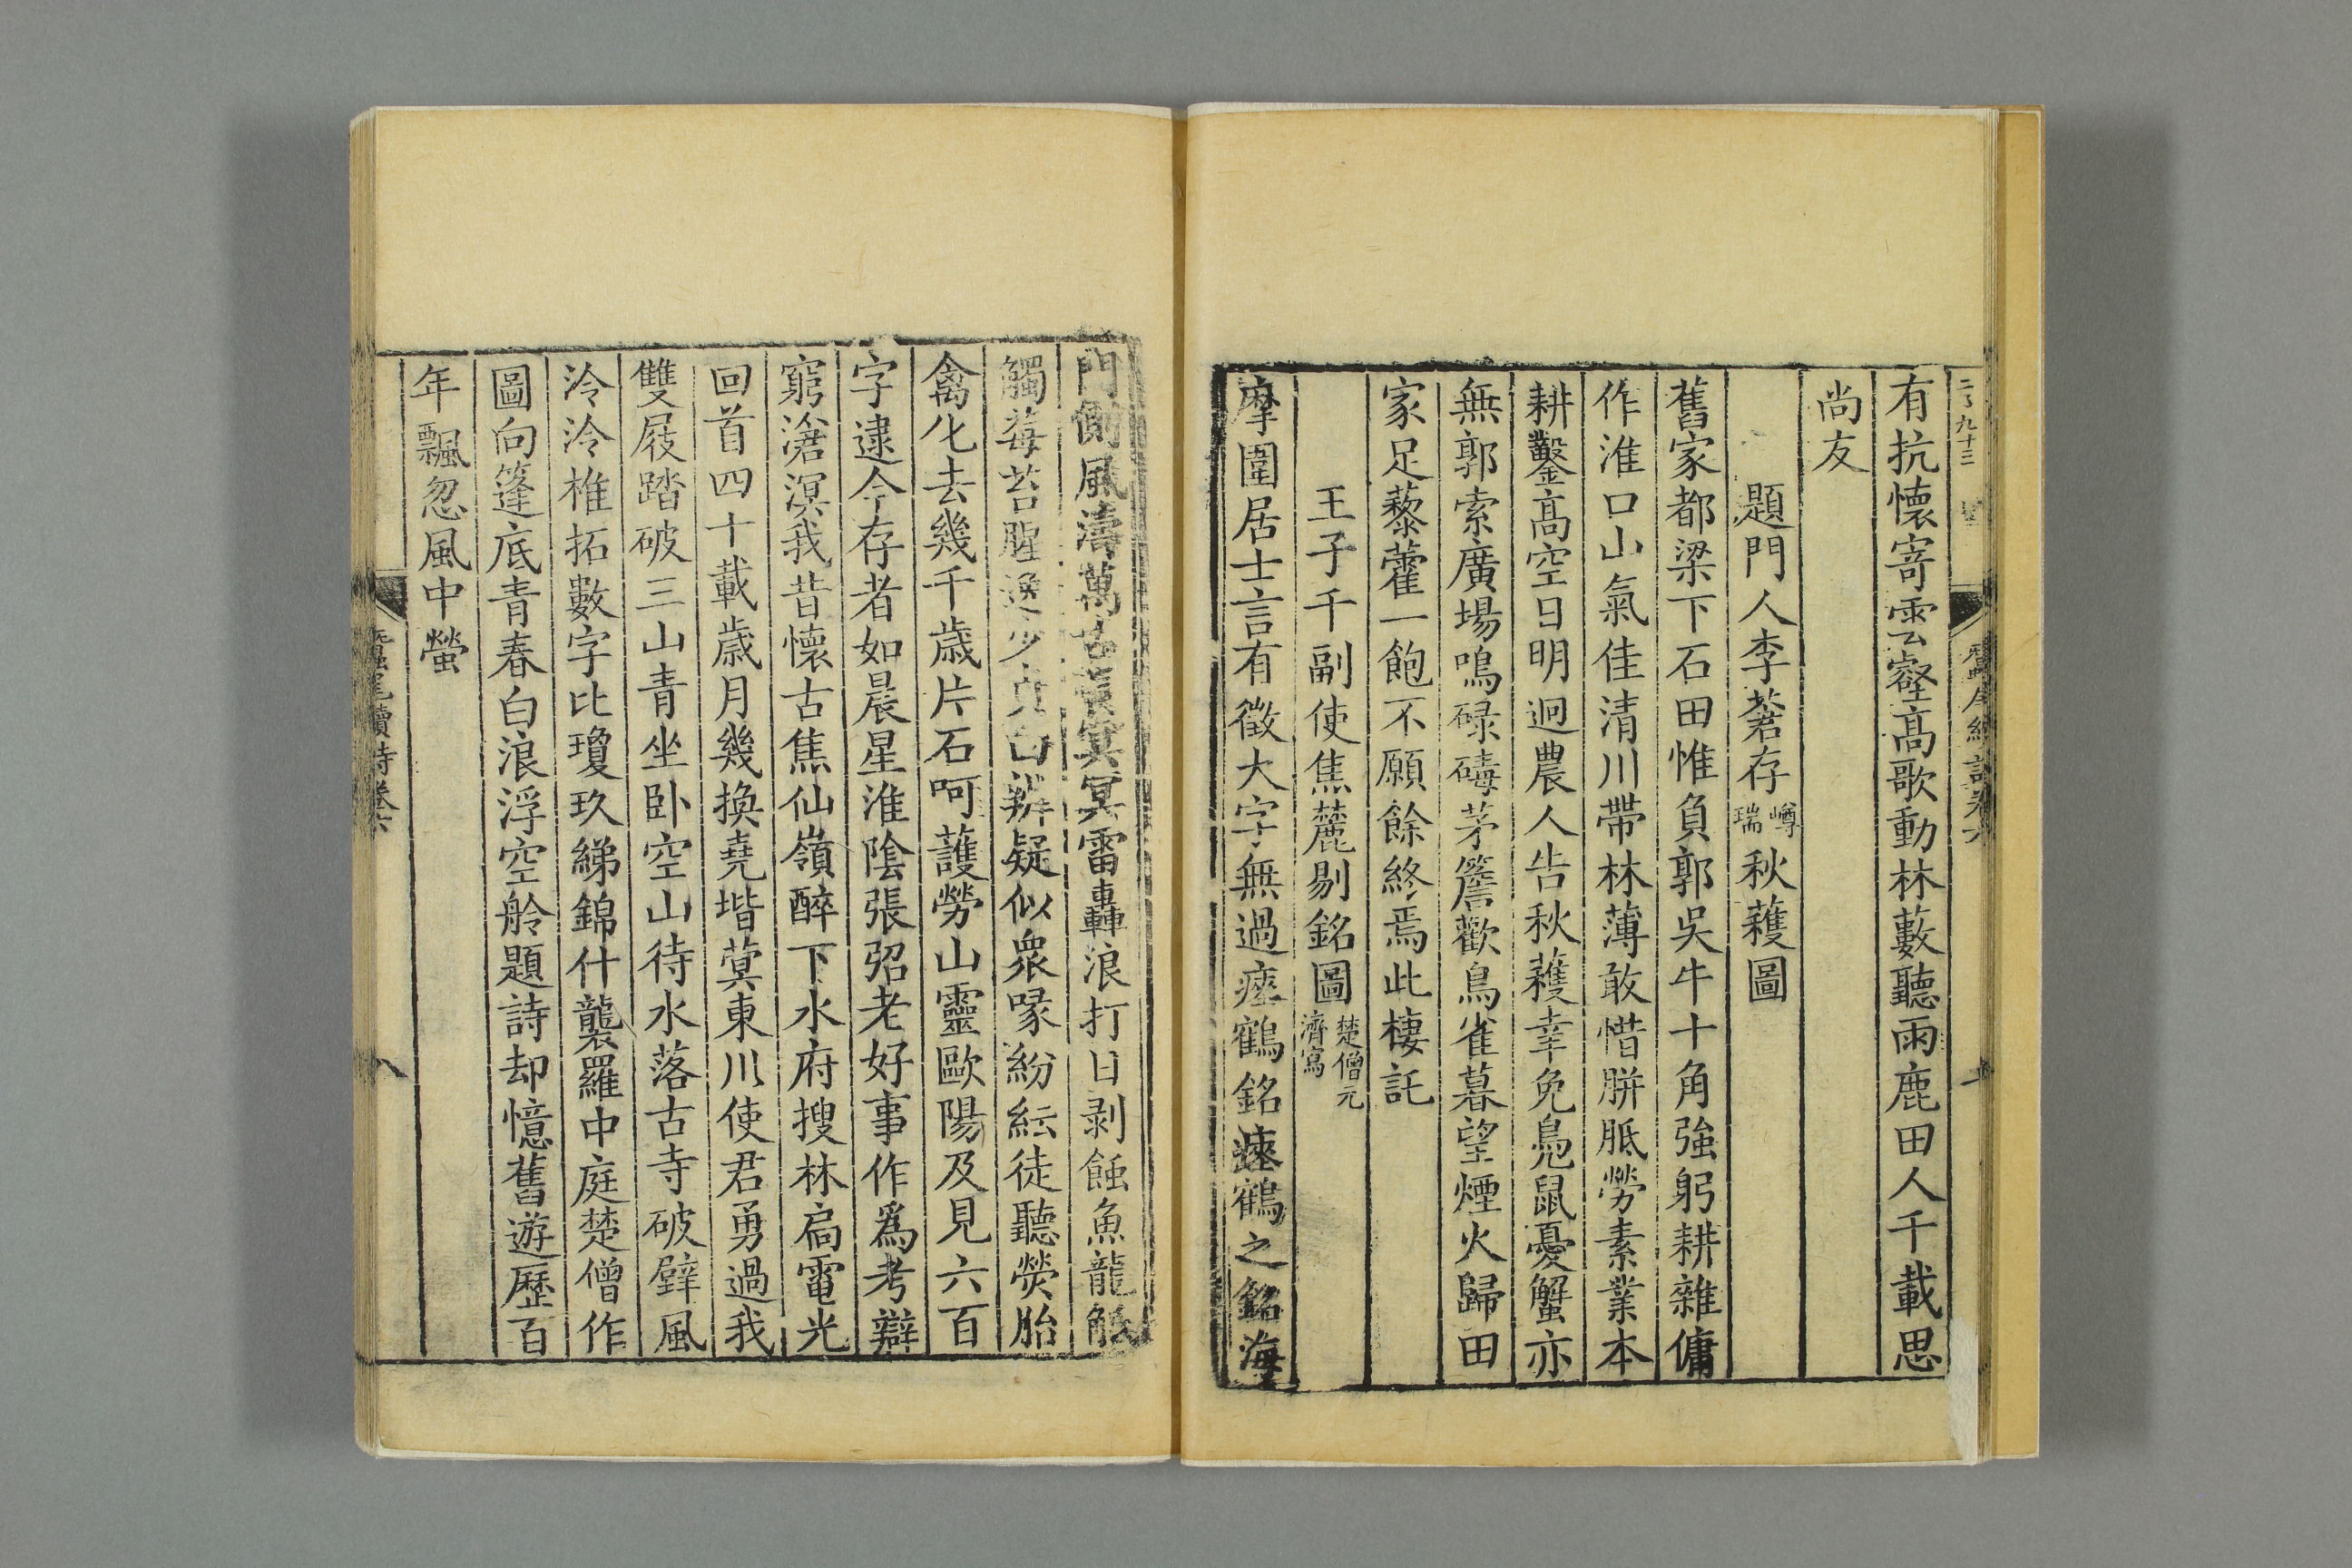 有抗懷寄雲壑高歌動林藪聽雨鹿田人千載思
尚友
題門人李蒼存嶟瑞秋蘀圖
舊家都梁下石田惟負郭吳牛十角強躬耕雜傭
作淮口山氣佳清川帶林薄敢惜胼胝勞素業本
耕鑿高空日明迥農人告秋蘀幸免鳧鼠憂蟹亦
無郭索廣場鳴碌碡茅簷歡鳥雀暮望煙火歸田
家足藜藿一飽不願餘終焉此棲託
王子千副使焦麓剔銘圖楚僧元濟寫
摩圍居士言有徵大字無過瘞鶴銘瘞鶴之銘海
門側風濤萬古冥冥雷轟浪打日剥蝕魚龍觝
觸莓苔腥逸少白辨疑似衆喙紛紜徒聽熒胎
禽化去幾千歲片石呵護勞山靈歐陽及見六百
字逮今存者如晨星淮陰張弨老好事作爲考辯
窮滄溟我昔懷古焦仙嶺醉下水府搜林扃電光
回首四十載歲月幾換堯堦蓂東川使君勇過我
雙屐踏破三山青坐卧空山待水落古寺破壁風
泠泠椎拓數字比瓊玖綈錦什襲羅中庭楚僧作
圖向篷底青春白浪浮空舲題詩却憶舊遊歷百
年飄忽風中螢
蠶尾續詩卷六
八